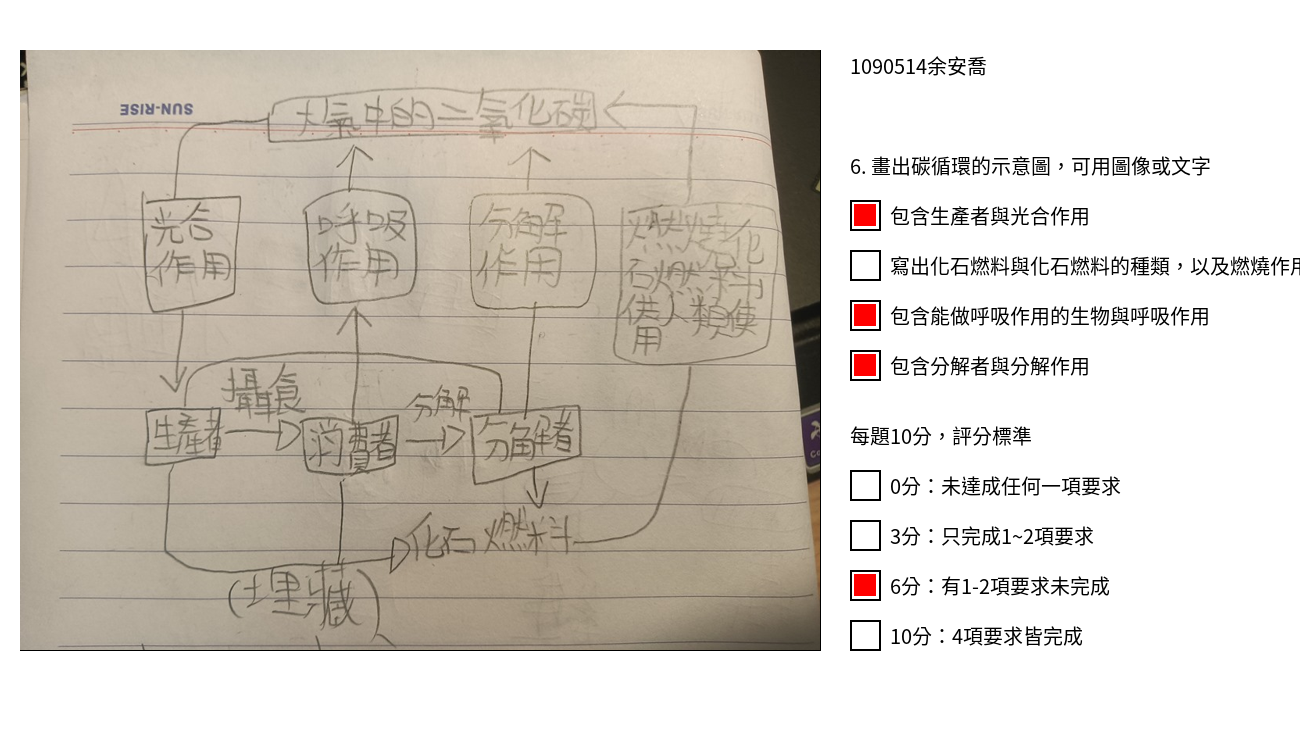 SUN-RISE
大氣中的二氧化碳
光合
作用
呼吸
作用
分解
作用
燃燒化
石燃料
供人類使
用
攝食
分解
生產者
消費者
分解者
化石燃料
(埋藏)
1090514余安喬
6. 畫出碳循環的示意圖，可用圖像或文字
包含生產者與光合作用
寫出化石燃料與化石燃料的種類，以及燃燒作用
包含能做呼吸作用的生物與呼吸作用
包含分解者與分解作用
每題10分，評分標準
0分：未達成任何一項要求
3分：只完成1~2項要求
6分：有1-2項要求未完成
10分：4項要求皆完成